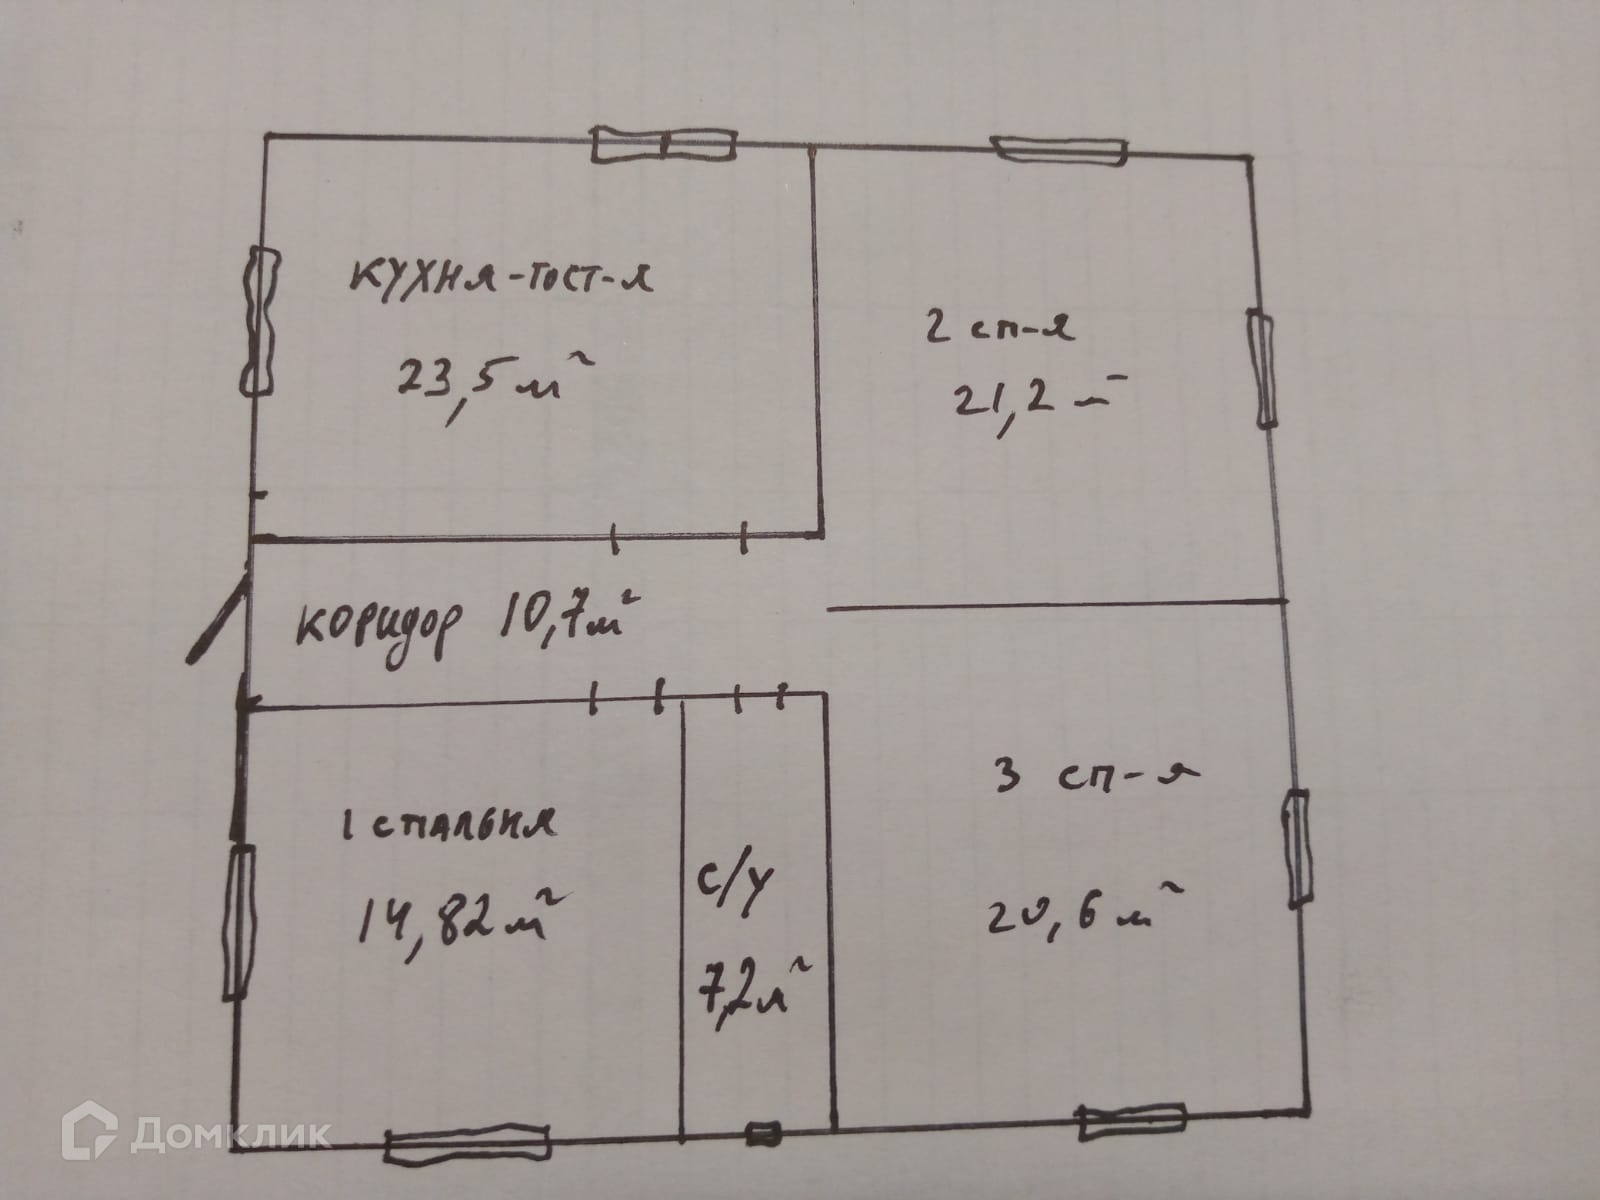 кухня-гост-я
23,5 м²
2 сп-я
21,2 м²
коридор 10,7 м²
1 спальня
14,82 м²
с/у
7,2 м²
3 сп-я
20,6 м²
Домклик